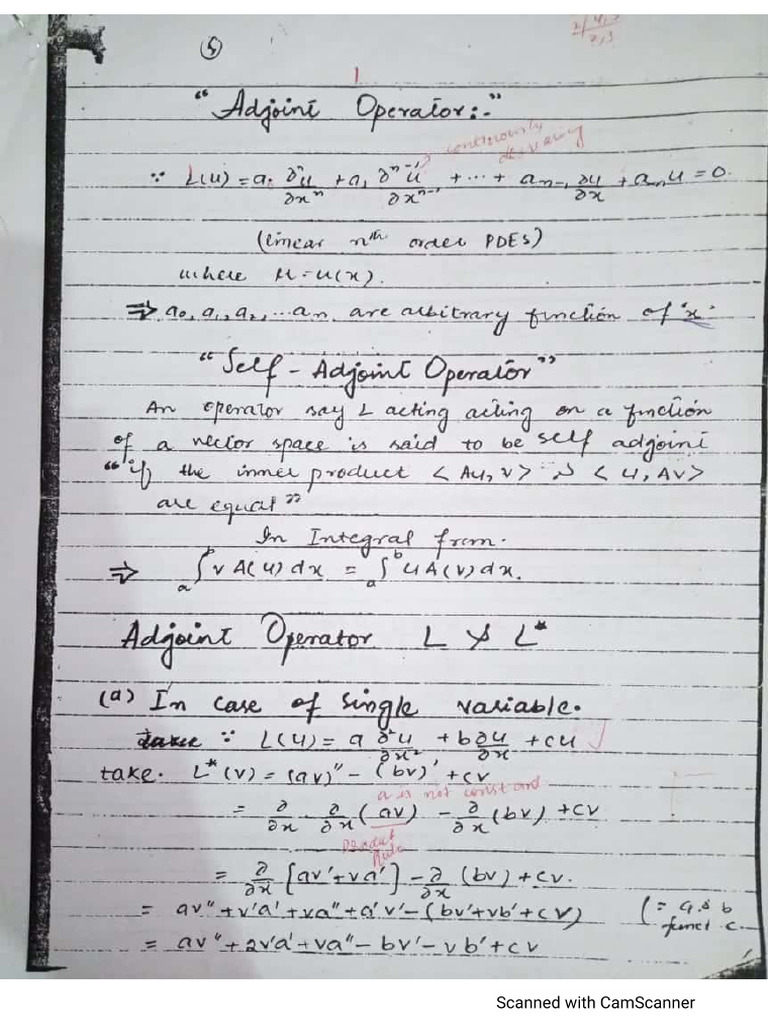 ⑤
"Adjoint Operator:-"
continuously
decreasing
∵ L(u) = a₀ ∂ⁿu/∂xⁿ + a₁ ∂ⁿ⁻¹u/∂xⁿ⁻¹ + ... + aₙ₋₁ ∂u/∂x + aₙu = 0.
(linear nth order PDEs)
where u = u(x).
⇒ a₀, a₁, a₂, ... aₙ are arbitrary function of 'x'
"Self - Adjoint Operator"
An operator say L acting acting on a function
of a vector space is said to be self adjoint
"if the inner product < Au, v > & < u, Av >
are equal"
In Integral from.
⇒ ₐ∫ᵇ v A(u) dx = ₐ∫ᵇ u A(v) dx.
Adjoint Operator L & L*
(a) In case of single variable.
∵ L(u) = a ∂²u/∂x² + b ∂u/∂x + cu
take. L*(v) = (av)'' - (bv)' + cv
a is not constant
= ∂/∂x . ∂/∂x (av) - ∂/∂x (bv) + cv
Product
Rule
= ∂/∂x [av' + va'] - ∂/∂x (bv) + cv.
= av'' + v'a' + va'' + a'v' - (bv' + vb' + cv) (= a & b
funct c.
= av'' + 2v'a' + va'' - bv' - vb' + cv
Scanned with CamScanner